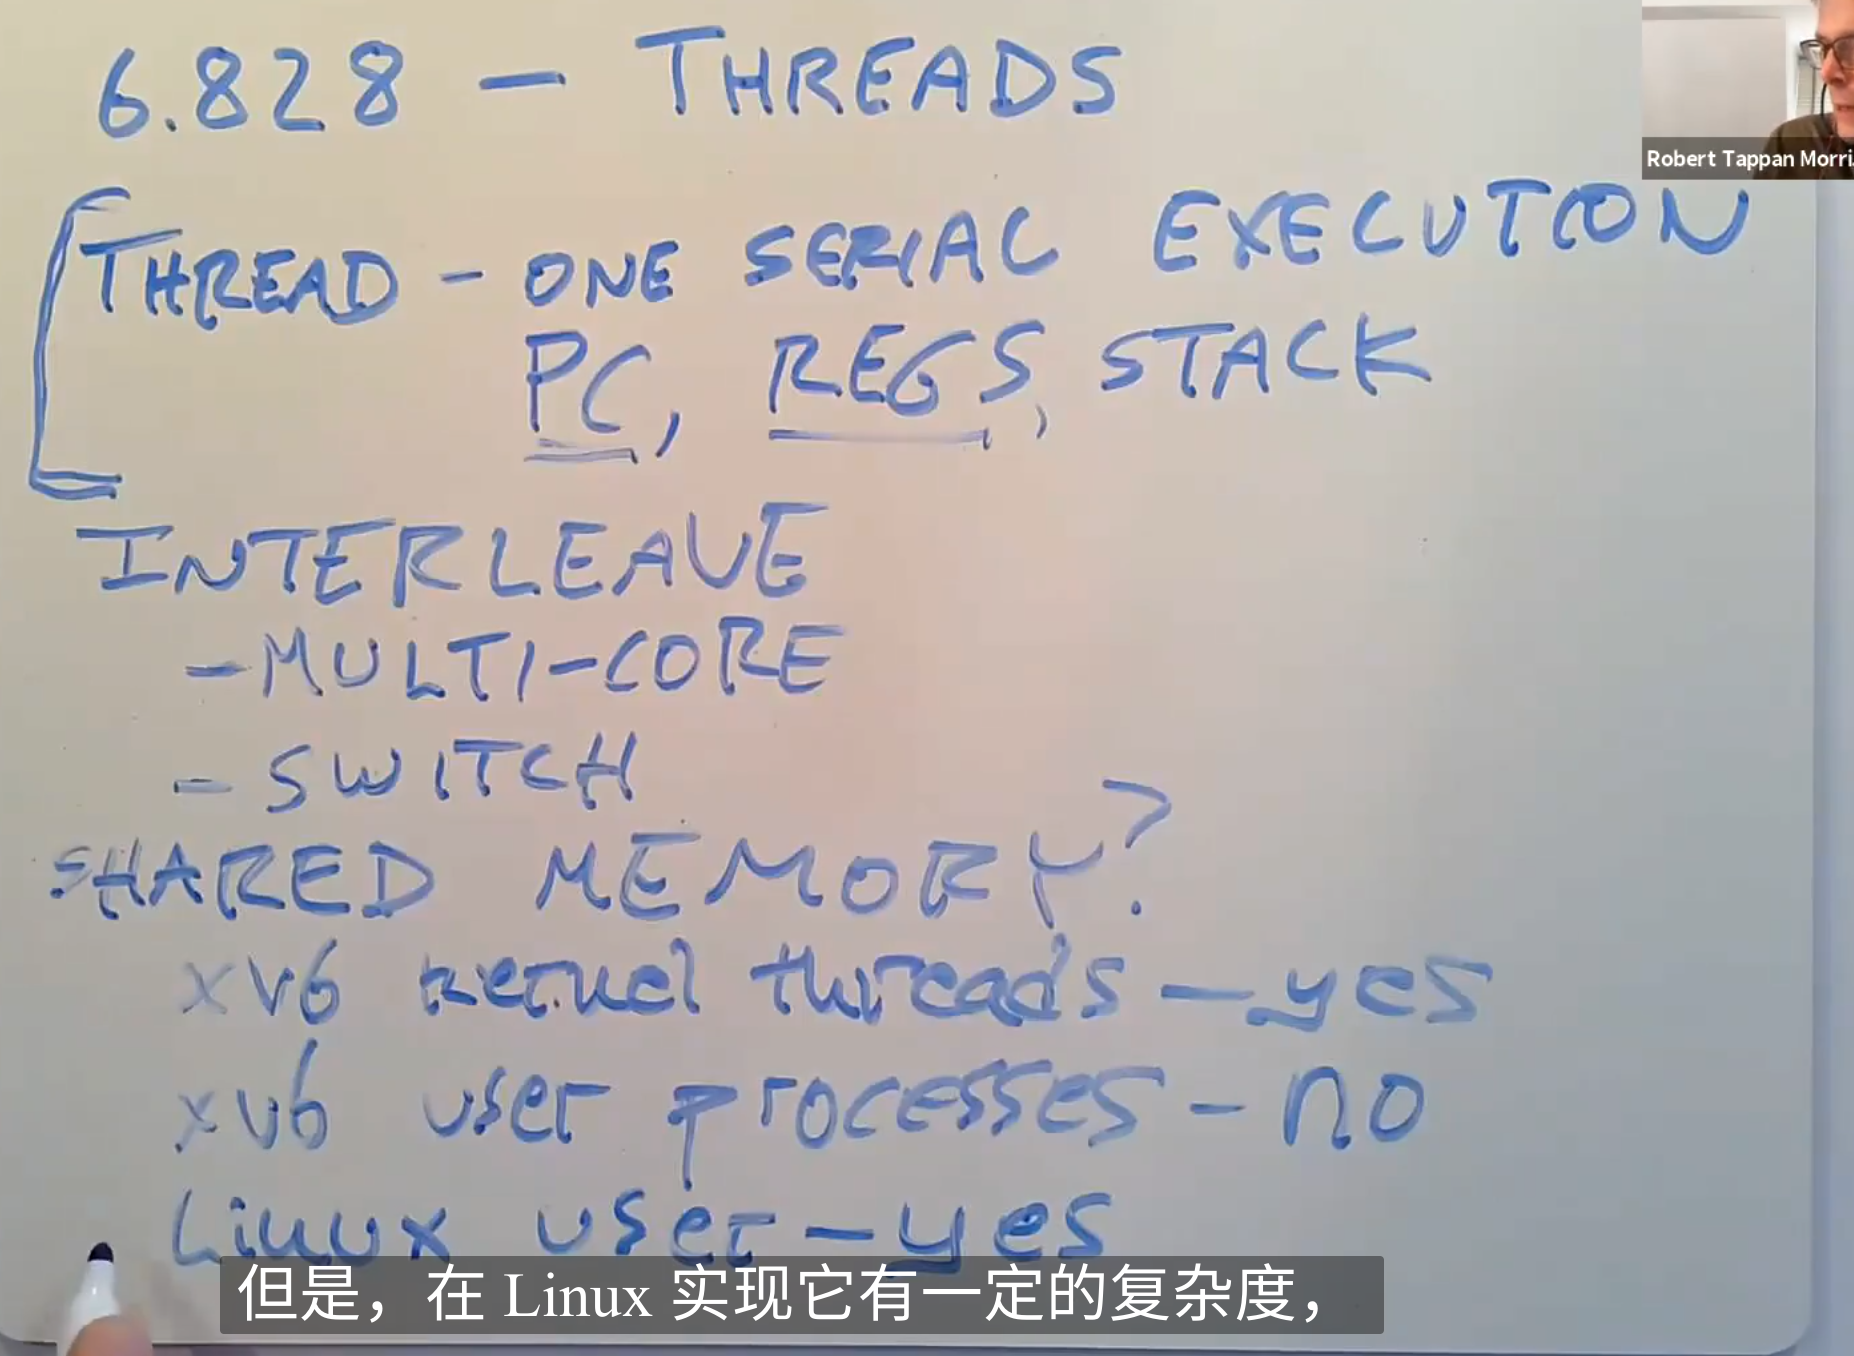 6.828 — THREADS
Robert Tappan Morri
THREAD - ONE SERIAL EXECUTION
PC, REGS, STACK
INTERLEAVE
- MULTI-CORE
- SWITCH
SHARED MEMORY?
xv6 kernel threads — yes
xv6 user processes - no
Linux user - yes
但是，在 Linux 实现它有一定的复杂度，